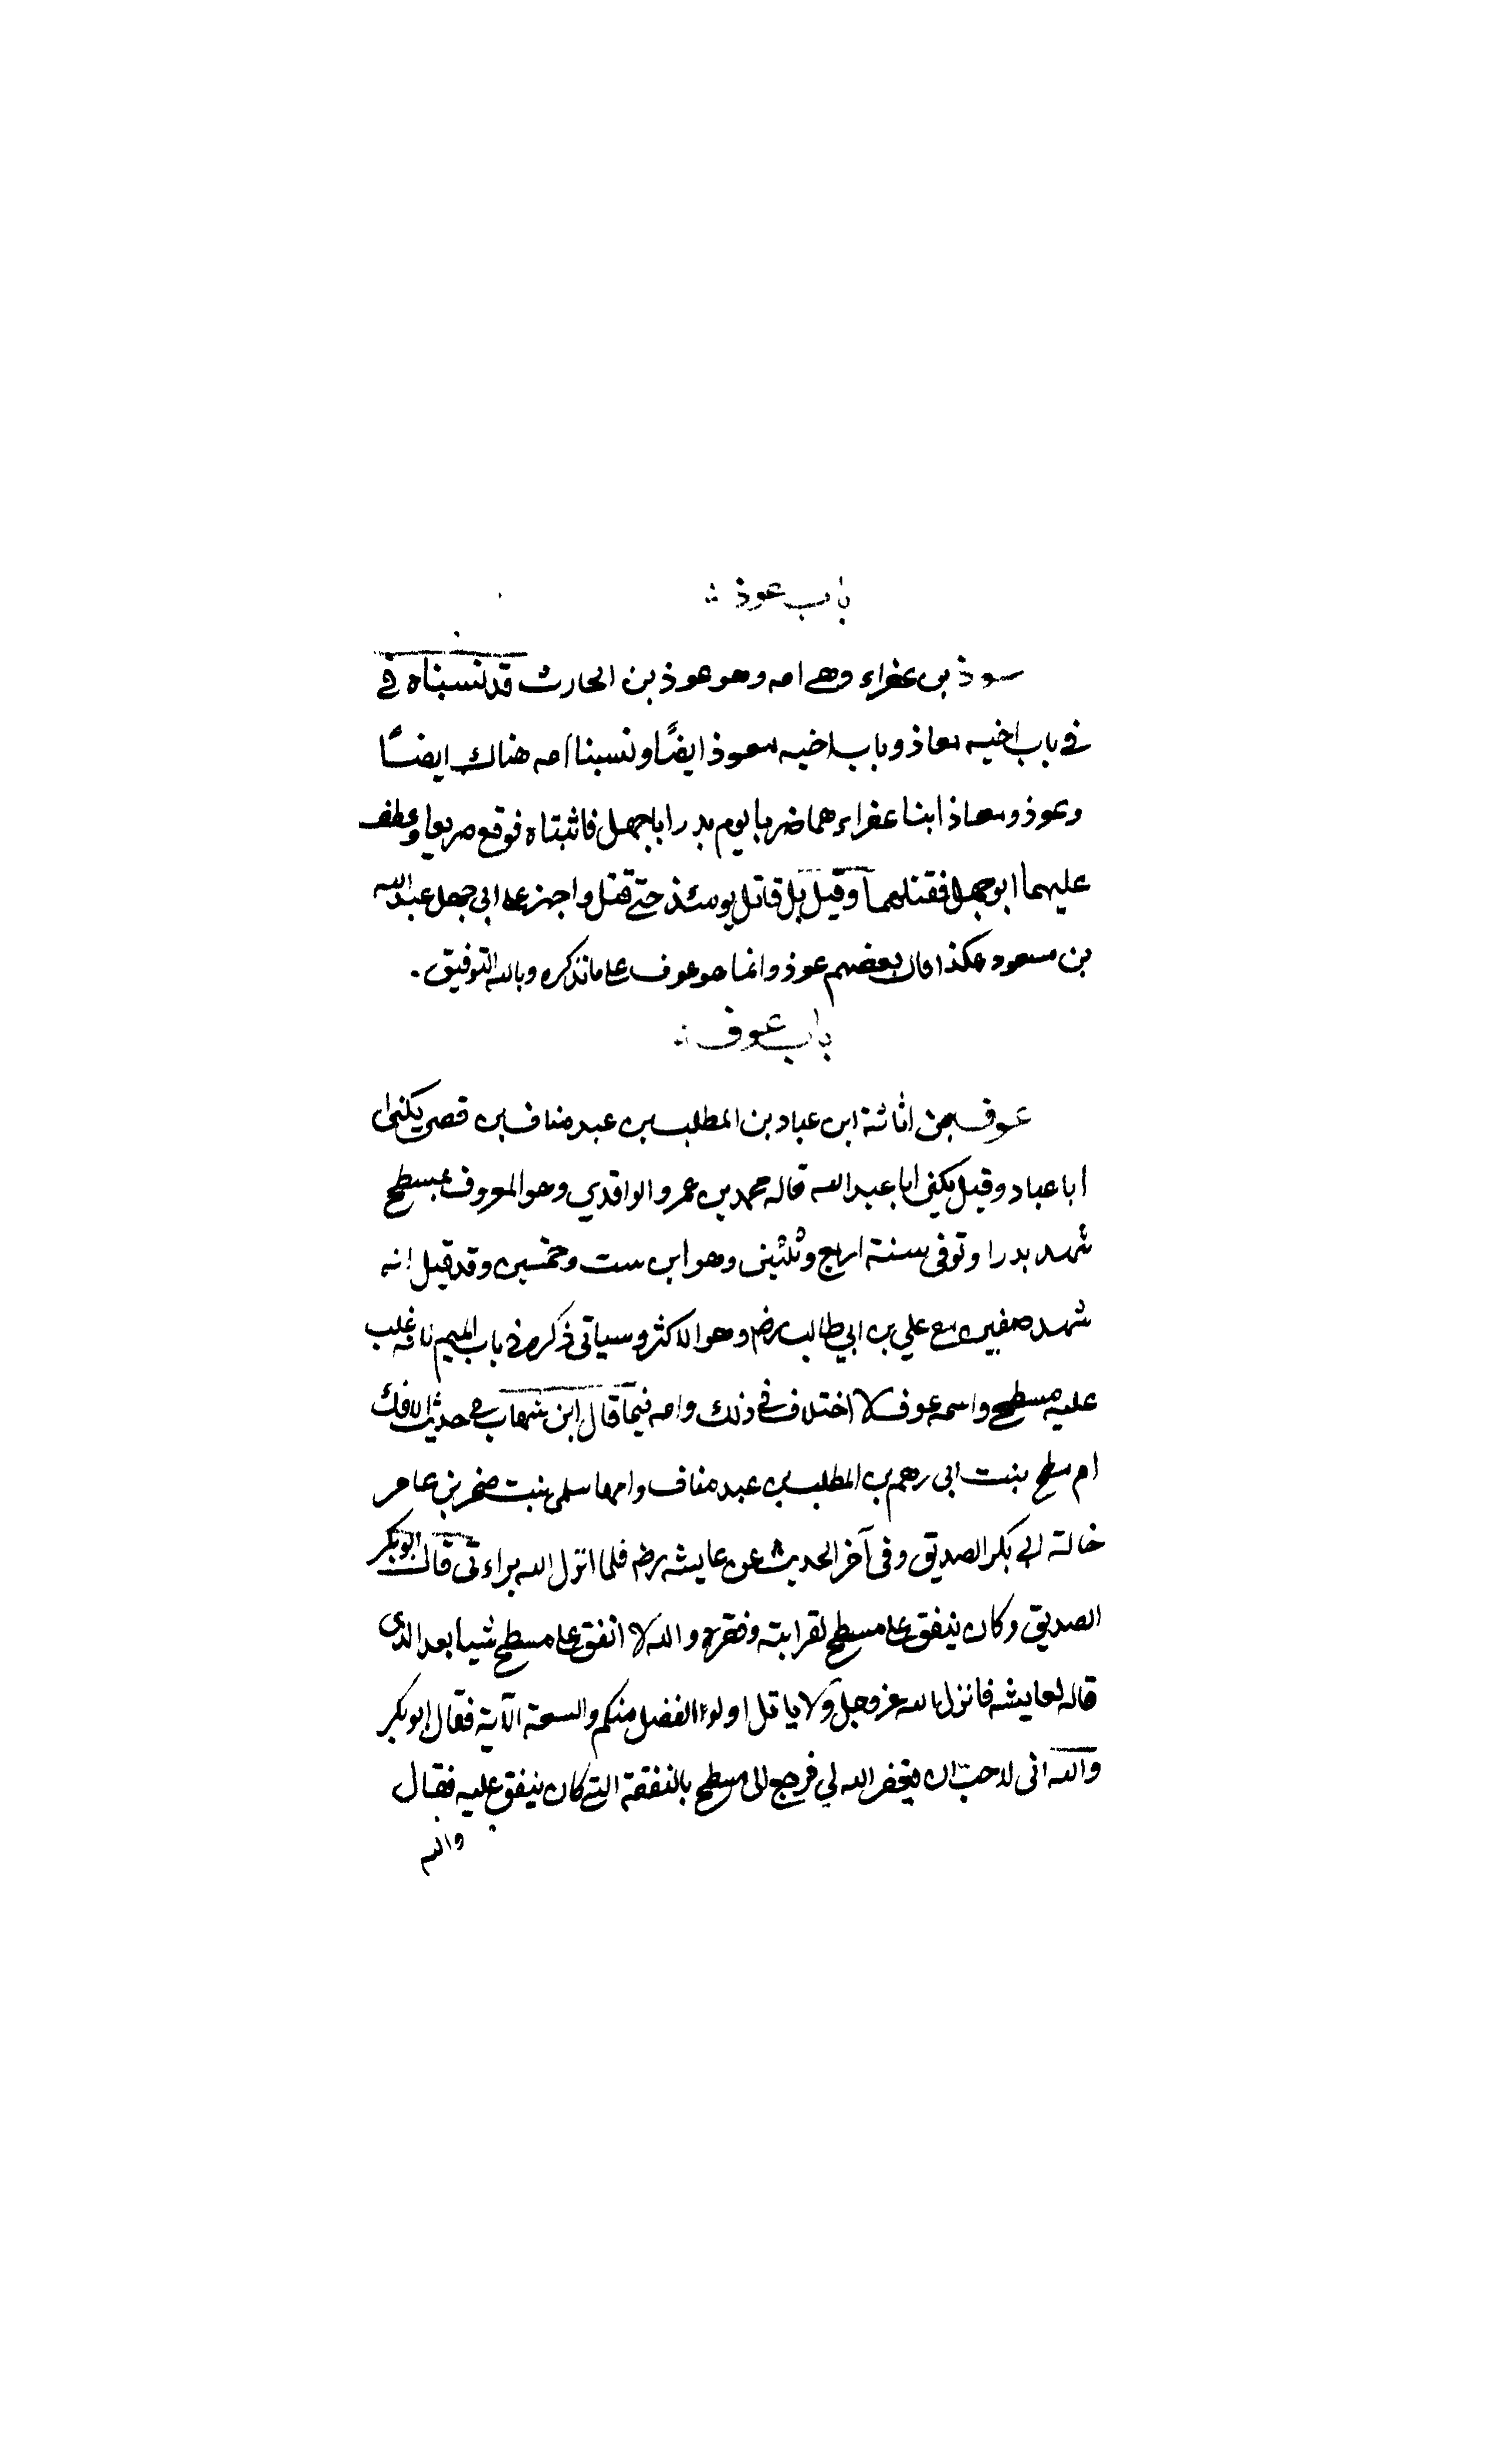 باب عوذ ؞
عوذ بن عفراء وهي امه وهو عوذ بن الحارث قد نسبناه في
في باب اخيه معاذ وباب اخيه معوذ ايضًا ونسبنا امه هناك ايضًا
وعوذ ومعاذ ابنا عفراء هما ضربا يوم بدر ابا جهل فاثبتاه فوقع صريعا وعطف
عليهما ابو جهل فقتلهما وقيل بل قاتل يومئذ حتى قتل واجهز على ابي جهل عبد الله
بن مسعود هكذا قال بعضهم عوذ وانما هو عوف على ما نذكره وبالله التوفيق .
باب عوف ؞
عوف بن اثاثة ابن عباد بن المطلب بن عبد مناف بن قصى يكنى
ابا عباد وقيل يكنى ابا عبد الله قاله محمد بن عمرو الواقدي وهو المعروف بمسطح
شهد بدرا وتوفى سنة اربع وثلثين وهو ابن ست وخمسين وقد قيل انه
شهد صفين مع علي بن ابي طالب رضه وهو الاكثر وسياتى ذكره في باب الميم لانه غلب
عليه مسطح واسمه عوف لا اختلاف في ذلك وامه فيما قال ابن شهاب في حديث الافك
ام مسطح بنت ابى رهم بن المطلب بن عبد مناف وامها سلمى بنت صخر بن عامر
خالة ابي بكر الصديق وفى آخر الحديث عن عايشه رضه فلما انزل الله براءتى قال ابو بكر
الصديق وكان ينفق على مسطح لقرابته وفقره والله لا انفق على مسطح شيا بعد الذى
قاله لعايشه فانزل الله عز وجل ولا ياتل اولوا الفضل منكم والسعة الآية فقال ابو بكر
والله انى لاحب ان يغفر الله لي فرجع الى مسطح بالنفقة التى كان ينفق عليه فقال
والله